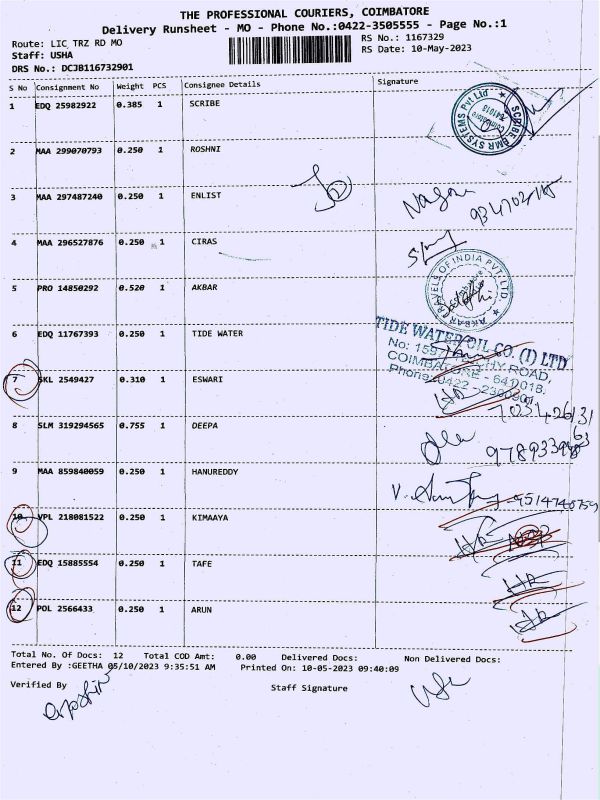 THE PROFESSIONAL COURIERS, COIMBATORE
Delivery Runsheet - MO - Phone No.:0422-3505555 - Page No.:1
Route: LIC TRZ RD MO
RS No.: 1167329
Staff: USHA
RS Date: 10-May-2023
DRS No.: DCJB116732901
S No Consignment No Weight PCS Consignee Details Signature
1 EDQ 25982922 0.385 1 SCRIBE
SCRIBE BMR SYSTEMS Pvt Ltd Coimbatore 641018
2 MAA 299070793 0.250 1 ROSHNI
3 MAA 297487240 0.250 1 ENLIST
4 MAA 296527876 0.250 1 CIRAS
5 PRO 14850292 0.520 1 AKBAR
AKBAR TRAVELS OF INDIA PVT. LTD
6 EDQ 11767393 0.250 1 TIDE WATER
TIDE WATER OIL CO. (I) LTD
COIMBATORE - 641018.
7 SKL 2549427 0.310 1 ESWARI
8 SLM 319294565 0.755 1 DEEPA
9 MAA 859840059 0.250 1 HANUREDDY
10 VPL 218081522 0.250 1 KIMAAYA
11 EDQ 15885554 0.250 1 TAFE
12 POL 2566433 0.250 1 ARUN
Total No. Of Docs: 12 Total COD Amt: 0.00 Delivered Docs: Non Delivered Docs:
Entered By :GEETHA 05/10/2023 9:35:51 AM Printed On: 10-05-2023 09:40:09
Verified By Staff Signature